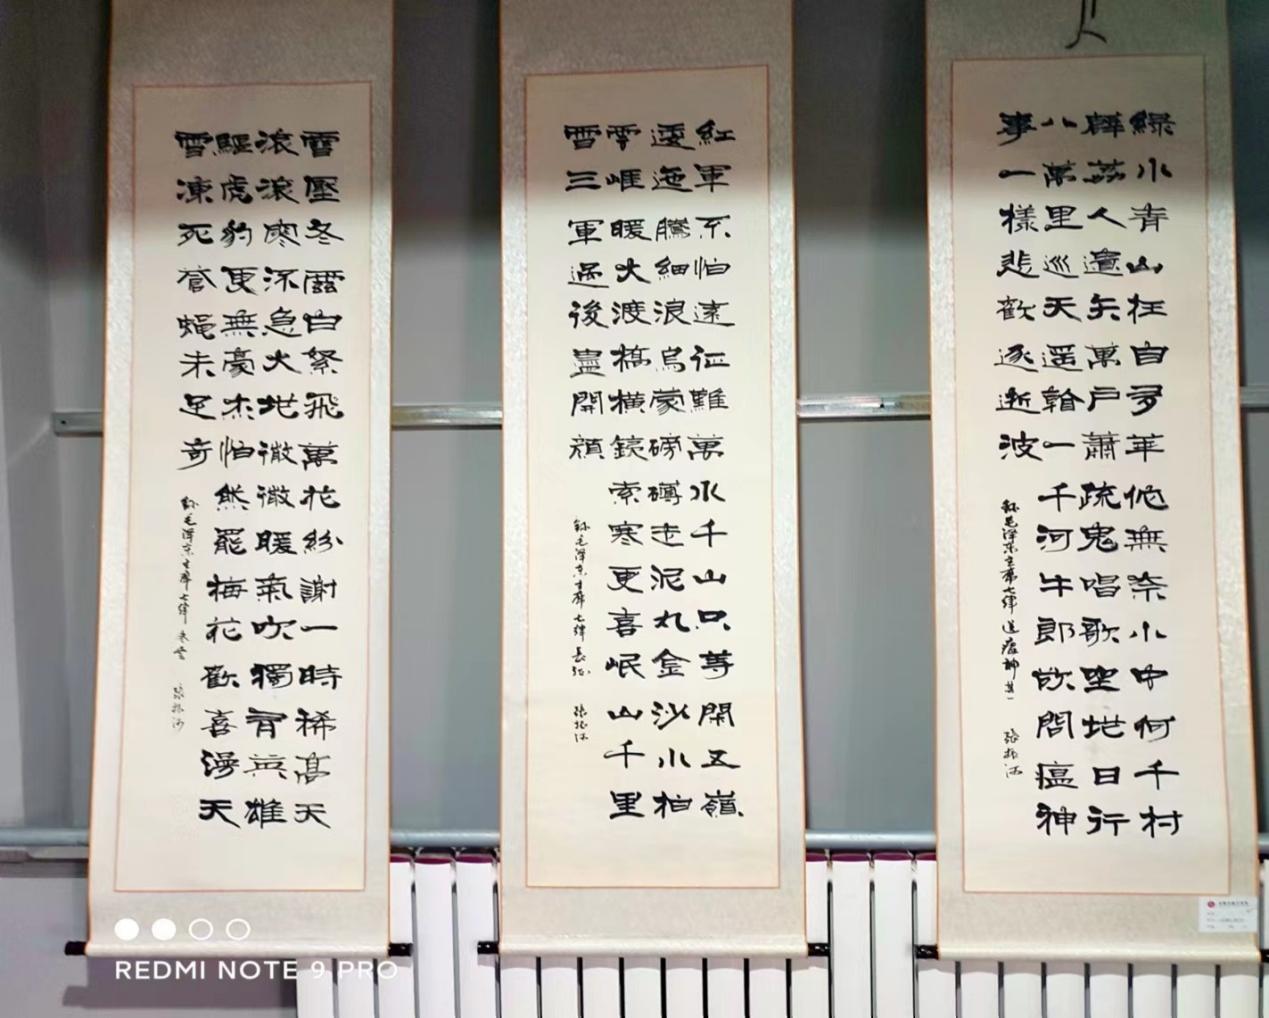 緑水青山枉自多華佗無奈小虫何千村
薜荔人遺矢萬戶蕭疏鬼唱歌坐地日行
八萬里巡天遥看一千河牛郎欲問瘟神
事一樣悲歡逐逝波
録毛澤東主席七律送瘟神其一
紅軍不怕遠征難萬水千山只等閑五嶺
逶迤騰細浪烏蒙磅礴走泥丸金沙水拍
雲崖暖大渡橋橫鐵索寒更喜岷山千里
雪三軍過後盡開顔
録毛澤東主席七律長征
雪壓冬雲白絮飛萬花紛謝一時稀高天
滾滾寒流急大地微微暖氣吹獨有英雄
驅虎豹更無豪杰怕熊羆梅花歡喜漫天
雪凍死蒼蠅未足奇
録毛澤東主席七律冬雲
REDMI NOTE 9 PRO